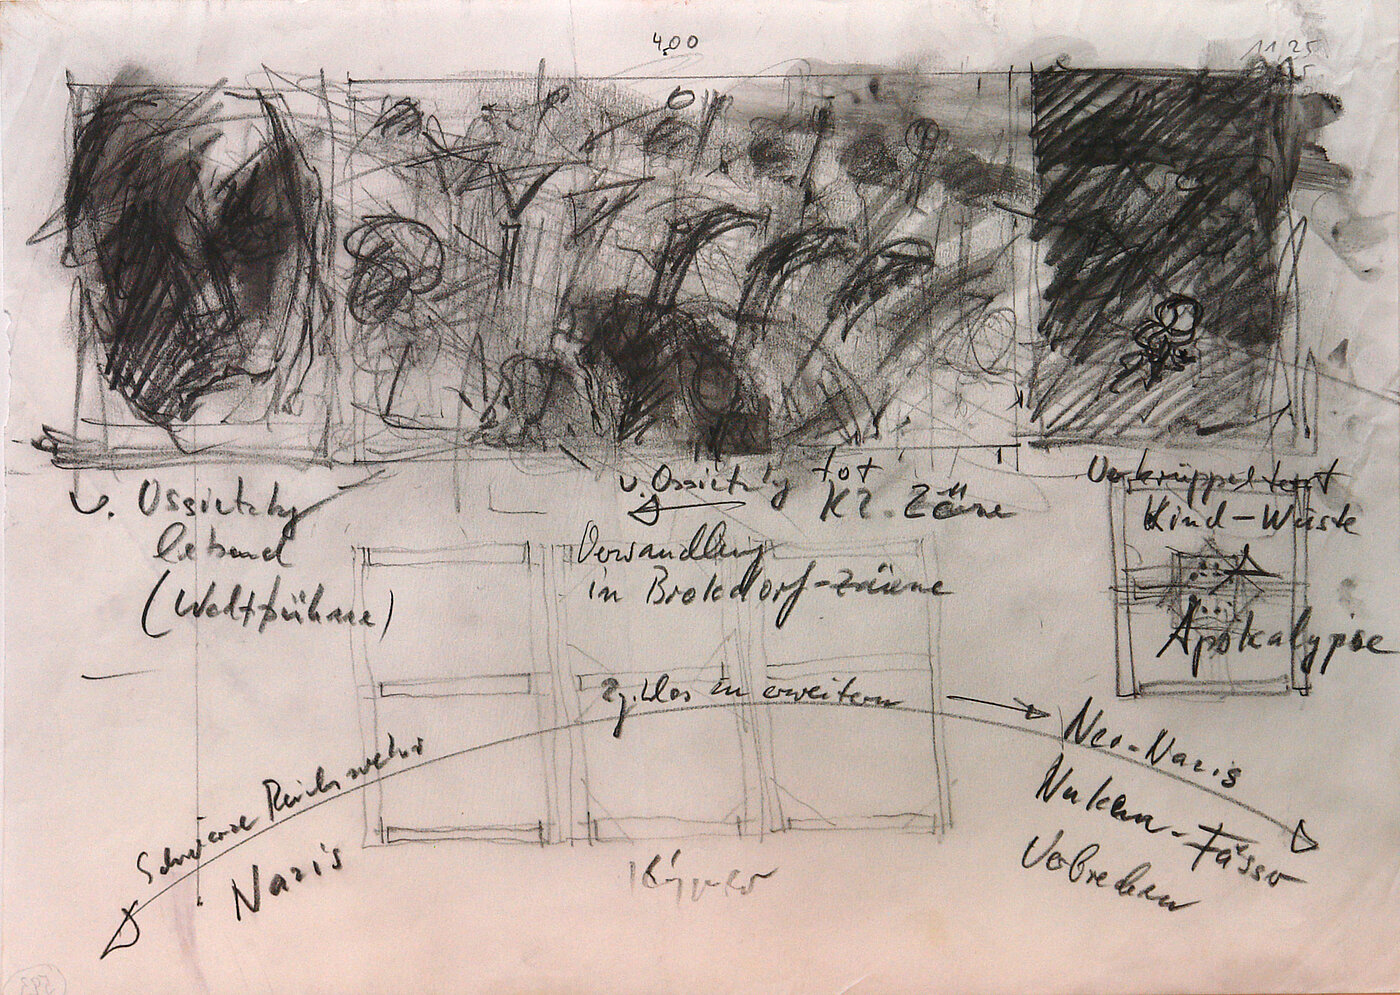 4,00
11,25
v. Ossietzky
lebend
(Weltbühne)
v. Ossietzky tot
KZ. Zäune
Verwandlung
in Brokdorf-Zäune
Verkrüppeltest
Kind-Wüste
Apokalypse
Zyklus zu erweitern
Schwarze Reichswehr
Nazis
Neo-Nazis
Nukem-Fässer
Verbrechen